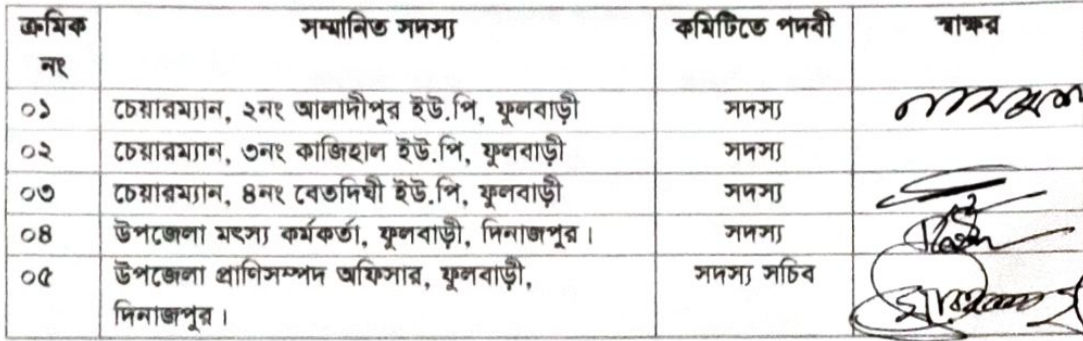 ক্রমিক নং	সম্মানিত সদস্য	কমিটিতে পদবী	স্বাক্ষর
০১	চেয়ারম্যান, ২নং আলাদীপুর ইউ.পি, ফুলবাড়ী	সদস্য
০২	চেয়ারম্যান, ৩নং কাজিহাল ইউ.পি, ফুলবাড়ী	সদস্য
০৩	চেয়ারম্যান, ৪নং বেতদিঘী ইউ.পি, ফুলবাড়ী	সদস্য
০৪	উপজেলা মৎস্য কর্মকর্তা, ফুলবাড়ী, দিনাজপুর।	সদস্য
০৫	উপজেলা প্রাণিসম্পদ অফিসার, ফুলবাড়ী,	সদস্য সচিব
দিনাজপুর।